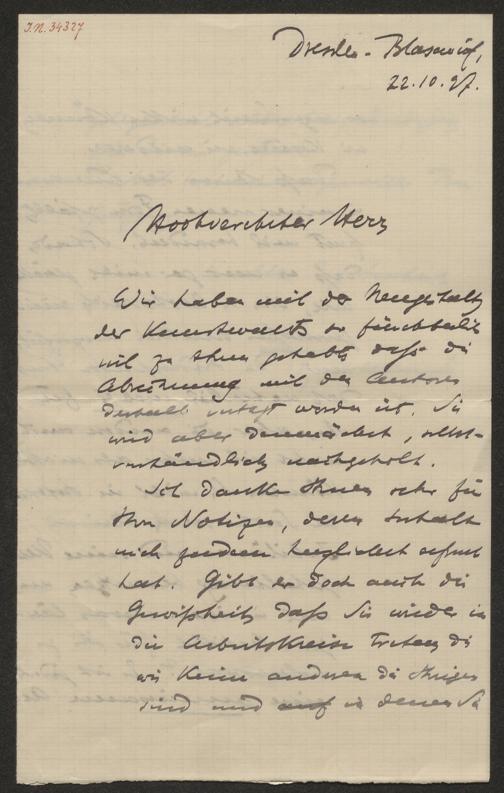 I.N. 34327
Dresden-Blasewitz,
22.10.97.
Hochverehrter Herr
Wir haben mit der Neugestaltg
der Kunstwarts so fürchterlich
viel zu thun gehabt, daß die
Abrechnung mit den Autoren
deshalb worden ist. Sie
wird aber demnächst, selbst-
verständlich nachgeholt.
Ich danke Ihnen sehr für
Ihre Notizen, deren Inhalt
mich herzlichst erfreut
hat. Gibt er doch auch die
Gewißheit, daß Sie wieder in
die Arbeitskreise treten, die
wie keine anderen die Ihrigen
sind und auf in denen Sie